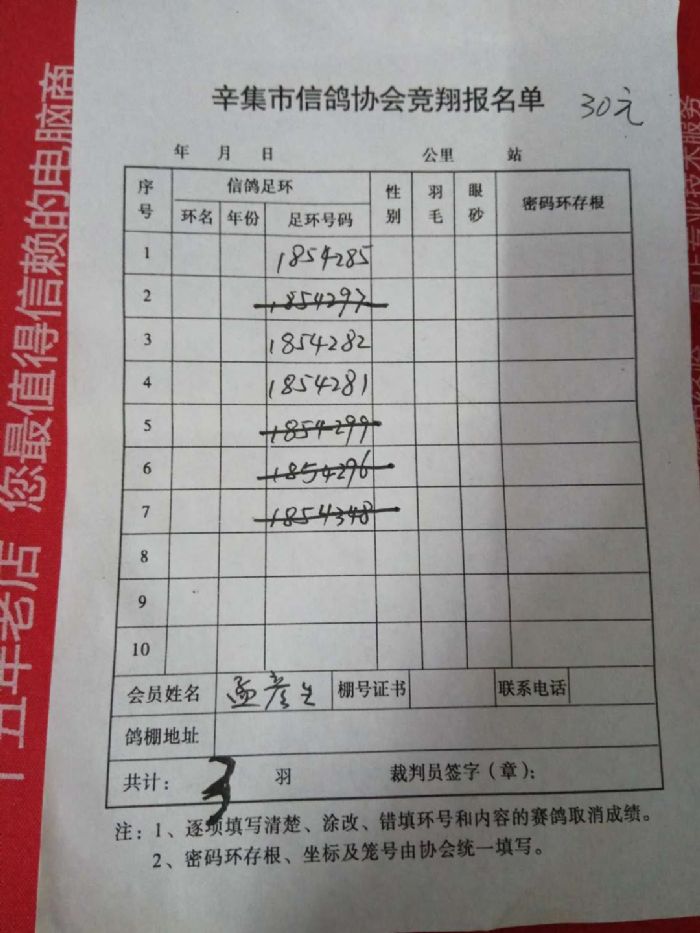 辛集市信鸽协会竞翔报名单 30元
年 月 日 公里 站
序号 信鸽足环 性别 羽毛 眼砂 密码环存根
环名 年份 足环号码
1 1854285
2 1854297
3 1854282
4 1854281
5 1854299
6 1854296
7 1854348
8
9
10
会员姓名 孟彦 棚号证书 联系电话
鸽棚地址
共计: 3 羽 裁判员签字(章):
注:1、逐项填写清楚、涂改、错填环号和内容的赛鸽取消成绩。
2、密码环存根、坐标及笼号由协会统一填写。
十五年老店 您最值得信赖的电脑商